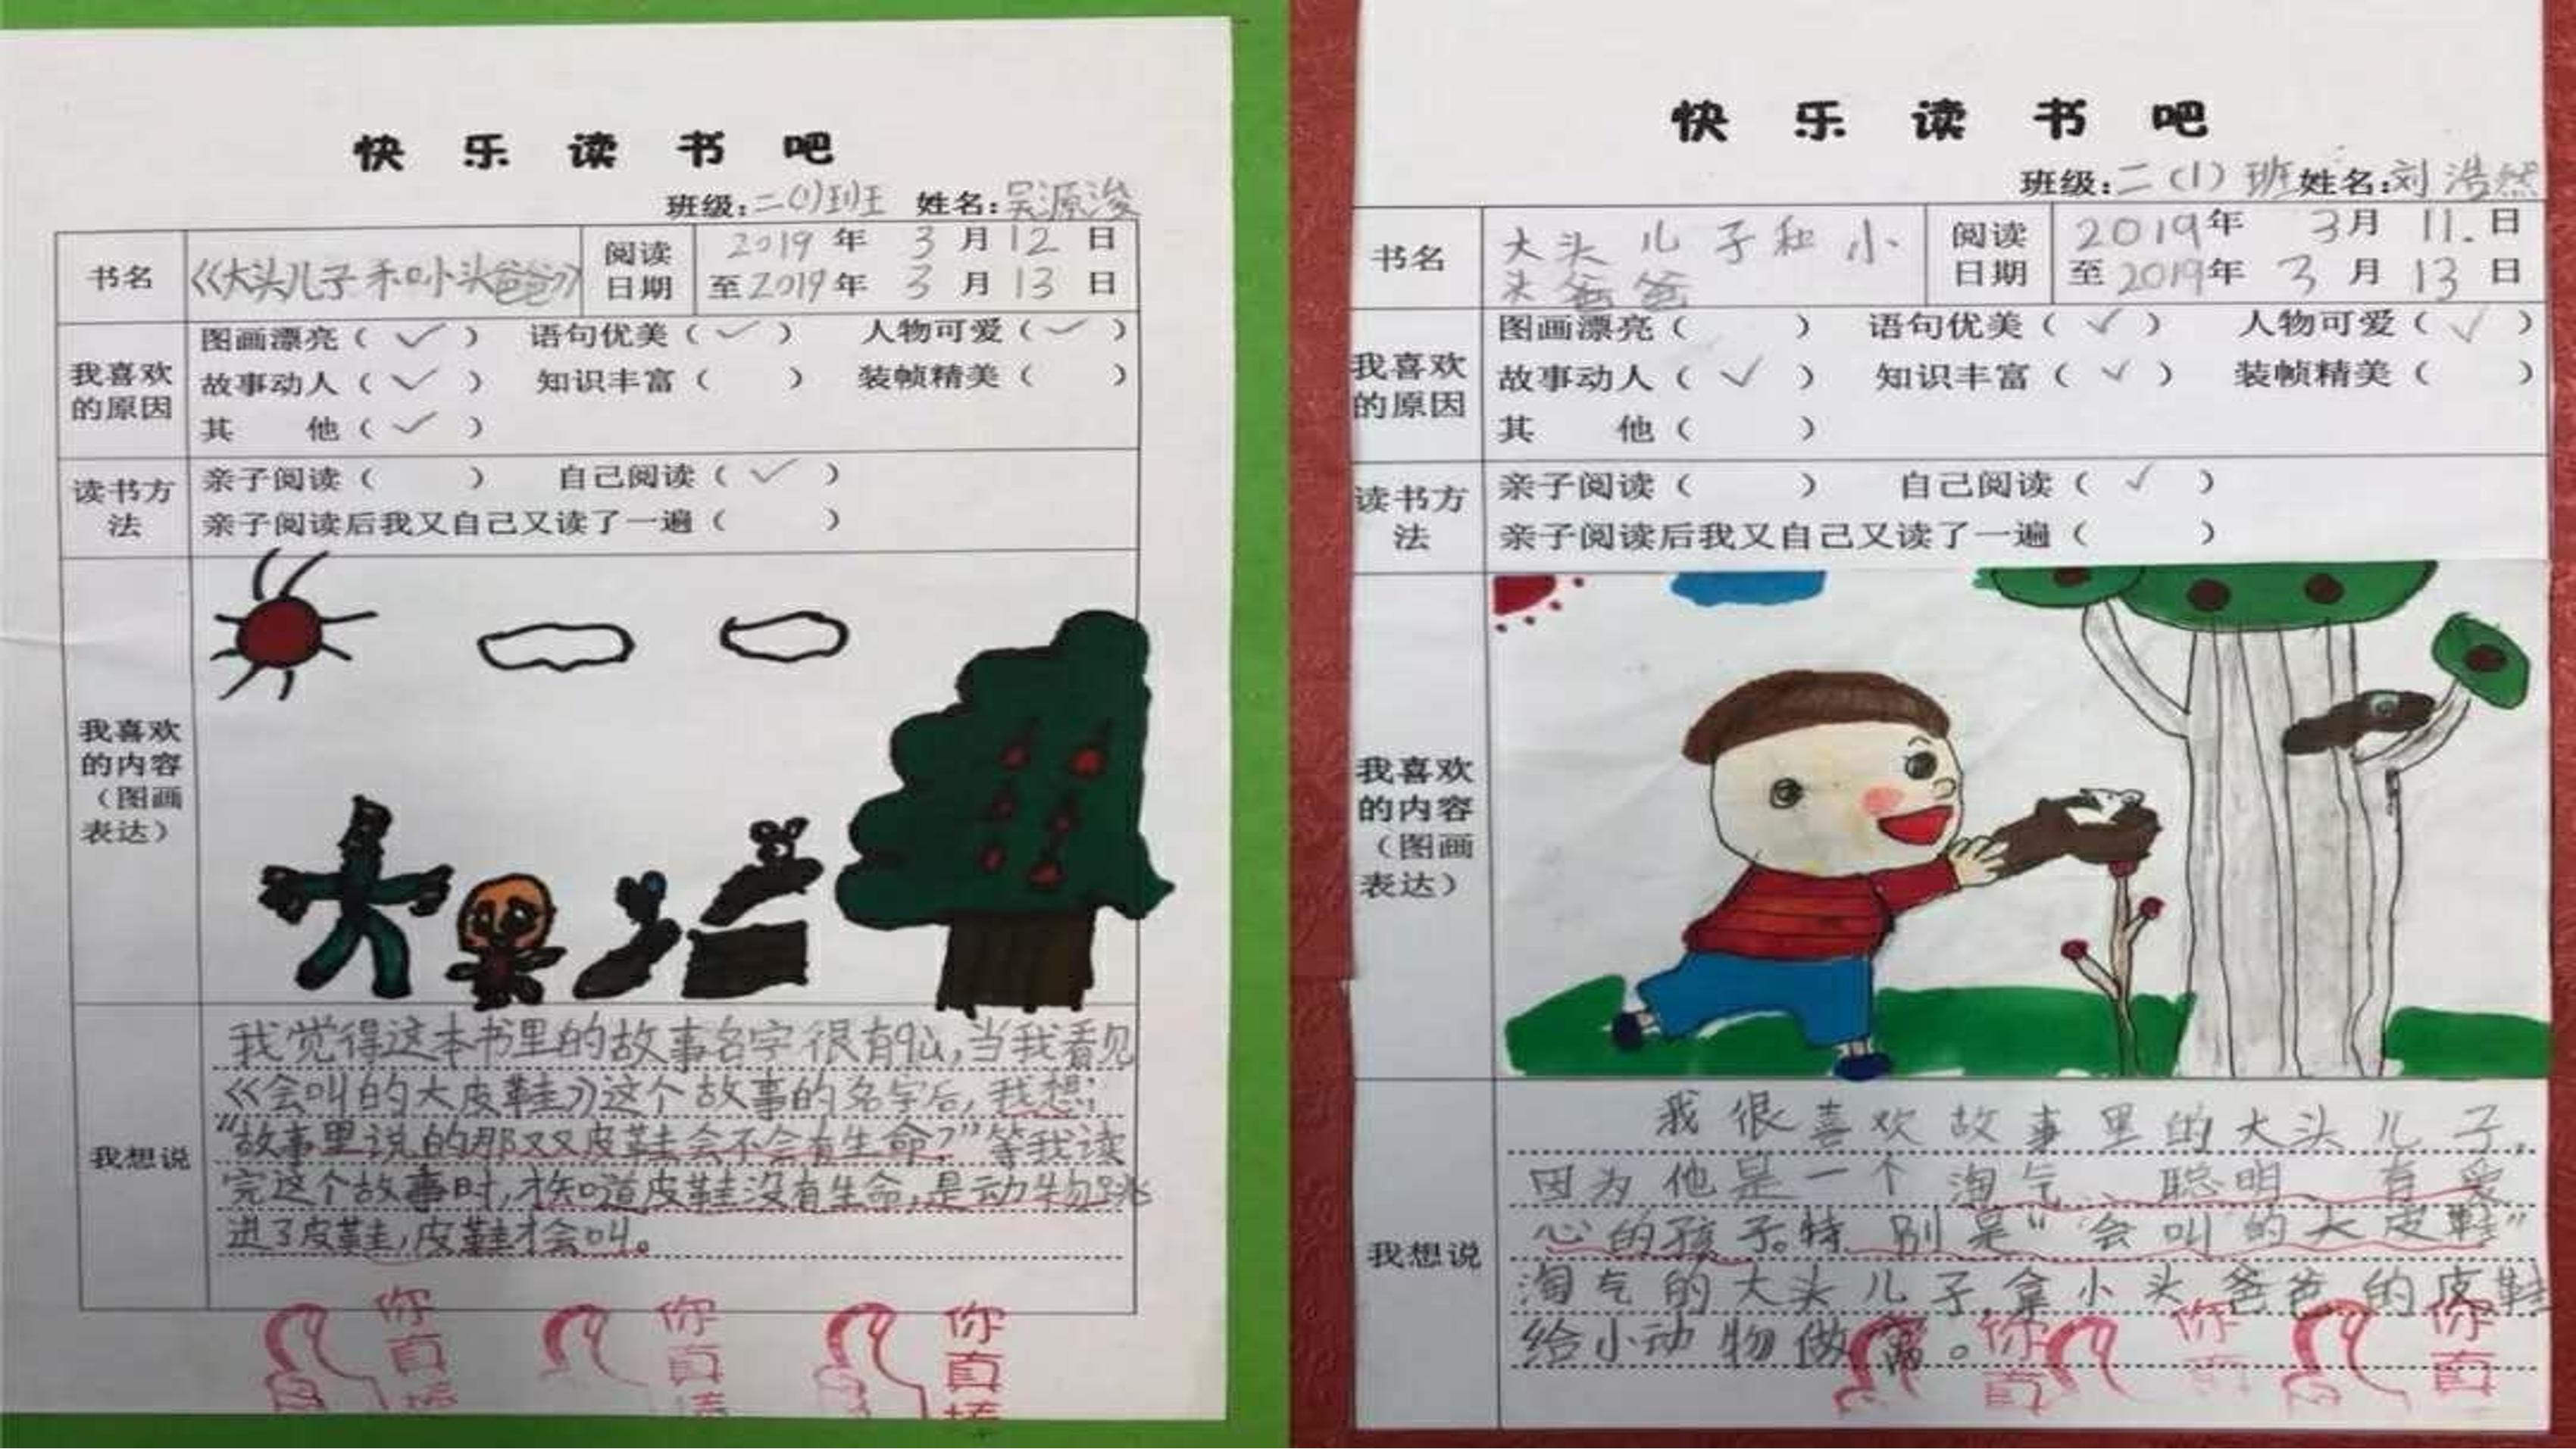 快乐读书吧
班级：二（1）班 姓名：吴源浚
书名
《大头儿子和小头爸爸》
阅读
日期
2019年 3月12日
至2019年 3月13日
我喜欢
的原因
图画漂亮（✓） 语句优美（✓） 人物可爱（✓）
故事动人（✓） 知识丰富（ ） 装帧精美（ ）
其 他（✓）
读书方
法
亲子阅读（ ） 自己阅读（✓）
亲子阅读后我又自己又读了一遍（ ）
我喜欢
的内容
（图画
表达）
我想说
我觉得这本书里的故事名字很有，当我看见
《会叫的大皮鞋》这个故事的名字后，我想：
“故事里说的那双皮鞋会不会有生命？”等我读
完这个故事时，才知道皮鞋没有生命，是动物跳
进了皮鞋，皮鞋才会叫。
你真棒
你真棒
你真棒
快乐读书吧
班级：二（1）班 姓名：刘浩然
书名
大头儿子和小
头爸爸
阅读
日期
2019年 3月 11.日
至2019年 3月 13日
我喜欢
的原因
图画漂亮（ ） 语句优美（✓） 人物可爱（✓）
故事动人（✓） 知识丰富（✓） 装帧精美（ ）
其 他（ ）
读书方
法
亲子阅读（ ） 自己阅读（✓）
亲子阅读后我又自己又读了一遍（ ）
我喜欢
的内容
（图画
表达）
我想说
我很喜欢故事里的大头儿子，
因为他是一个淘气、聪明、有爱
心的孩子。特别是“会叫的大皮鞋”
淘气的大头儿子拿小头爸爸的皮鞋
给小动物做窝。
你真
你真
你真